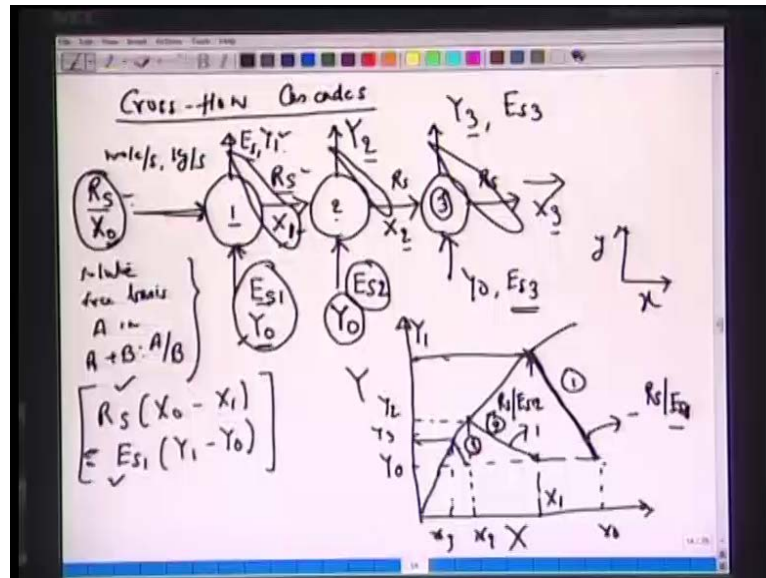 Cross-flow Cascades
mole/s, kg/s
Es, Y1
Y2
Y3, Es3
Rs
X0
1
Rs
X1
2
Rs
X2
3
Rs
X3
Es1
Y0
Es2
Y0
Y0, Es3
solute
free basis
A in
A + B: A/B
Rs (X0 - X1)
= Es1 (Y1 - Y0)
y
x
Y1
Y
Y2
Y3
Y0
1
2
3
Rs/Es2
- Rs/Es1
X1
x3
x2
X
x0